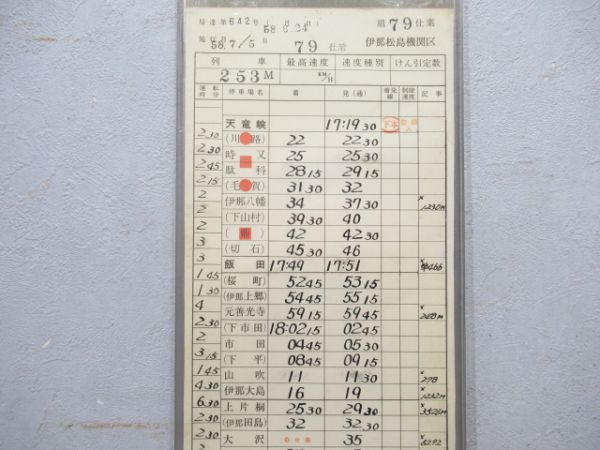 局達第642号 ( 月 日 ) 58.6.24 組 79 仕業
施行月日 58.7/5 日 79 仕業 伊那松島機関区
列車 最高速度 速度種別 けん引定数
253M KM/H
運転時分 停車場名 着 発(通) 着発線 制限速度 記事
天竜峡 17:19 30 下本
2 30 (川路) 22 22 30
2 30 時又 25 25 30
2 45 駄科 28 15 29 15
2 15 (毛賀) 31 30 32
2 伊那八幡 34 37 30 ×
2 (下山村) 39 30 40
2 (鼎) 42 42 30
3 (切石) 45 30 46
3 飯田 17:49 17:51 ×
1 45 (桜町) 52 45 53 15
1 30 (伊那上郷) 54 45 55 15
4 元善光寺 59 15 59 45 ×
2 30 (下市田) 18:02 15 02 45
2 市田 04 45 05 30
3 15 (下平) 08 45 09 15
1 45 山吹 11 11 30 × 278
4 30 伊那大島 16 19 × 1232m
6 30 上片桐 25 30 29 30 ×
2 30 (伊那田島) 32 32 30
2 30 大沢 35 ×